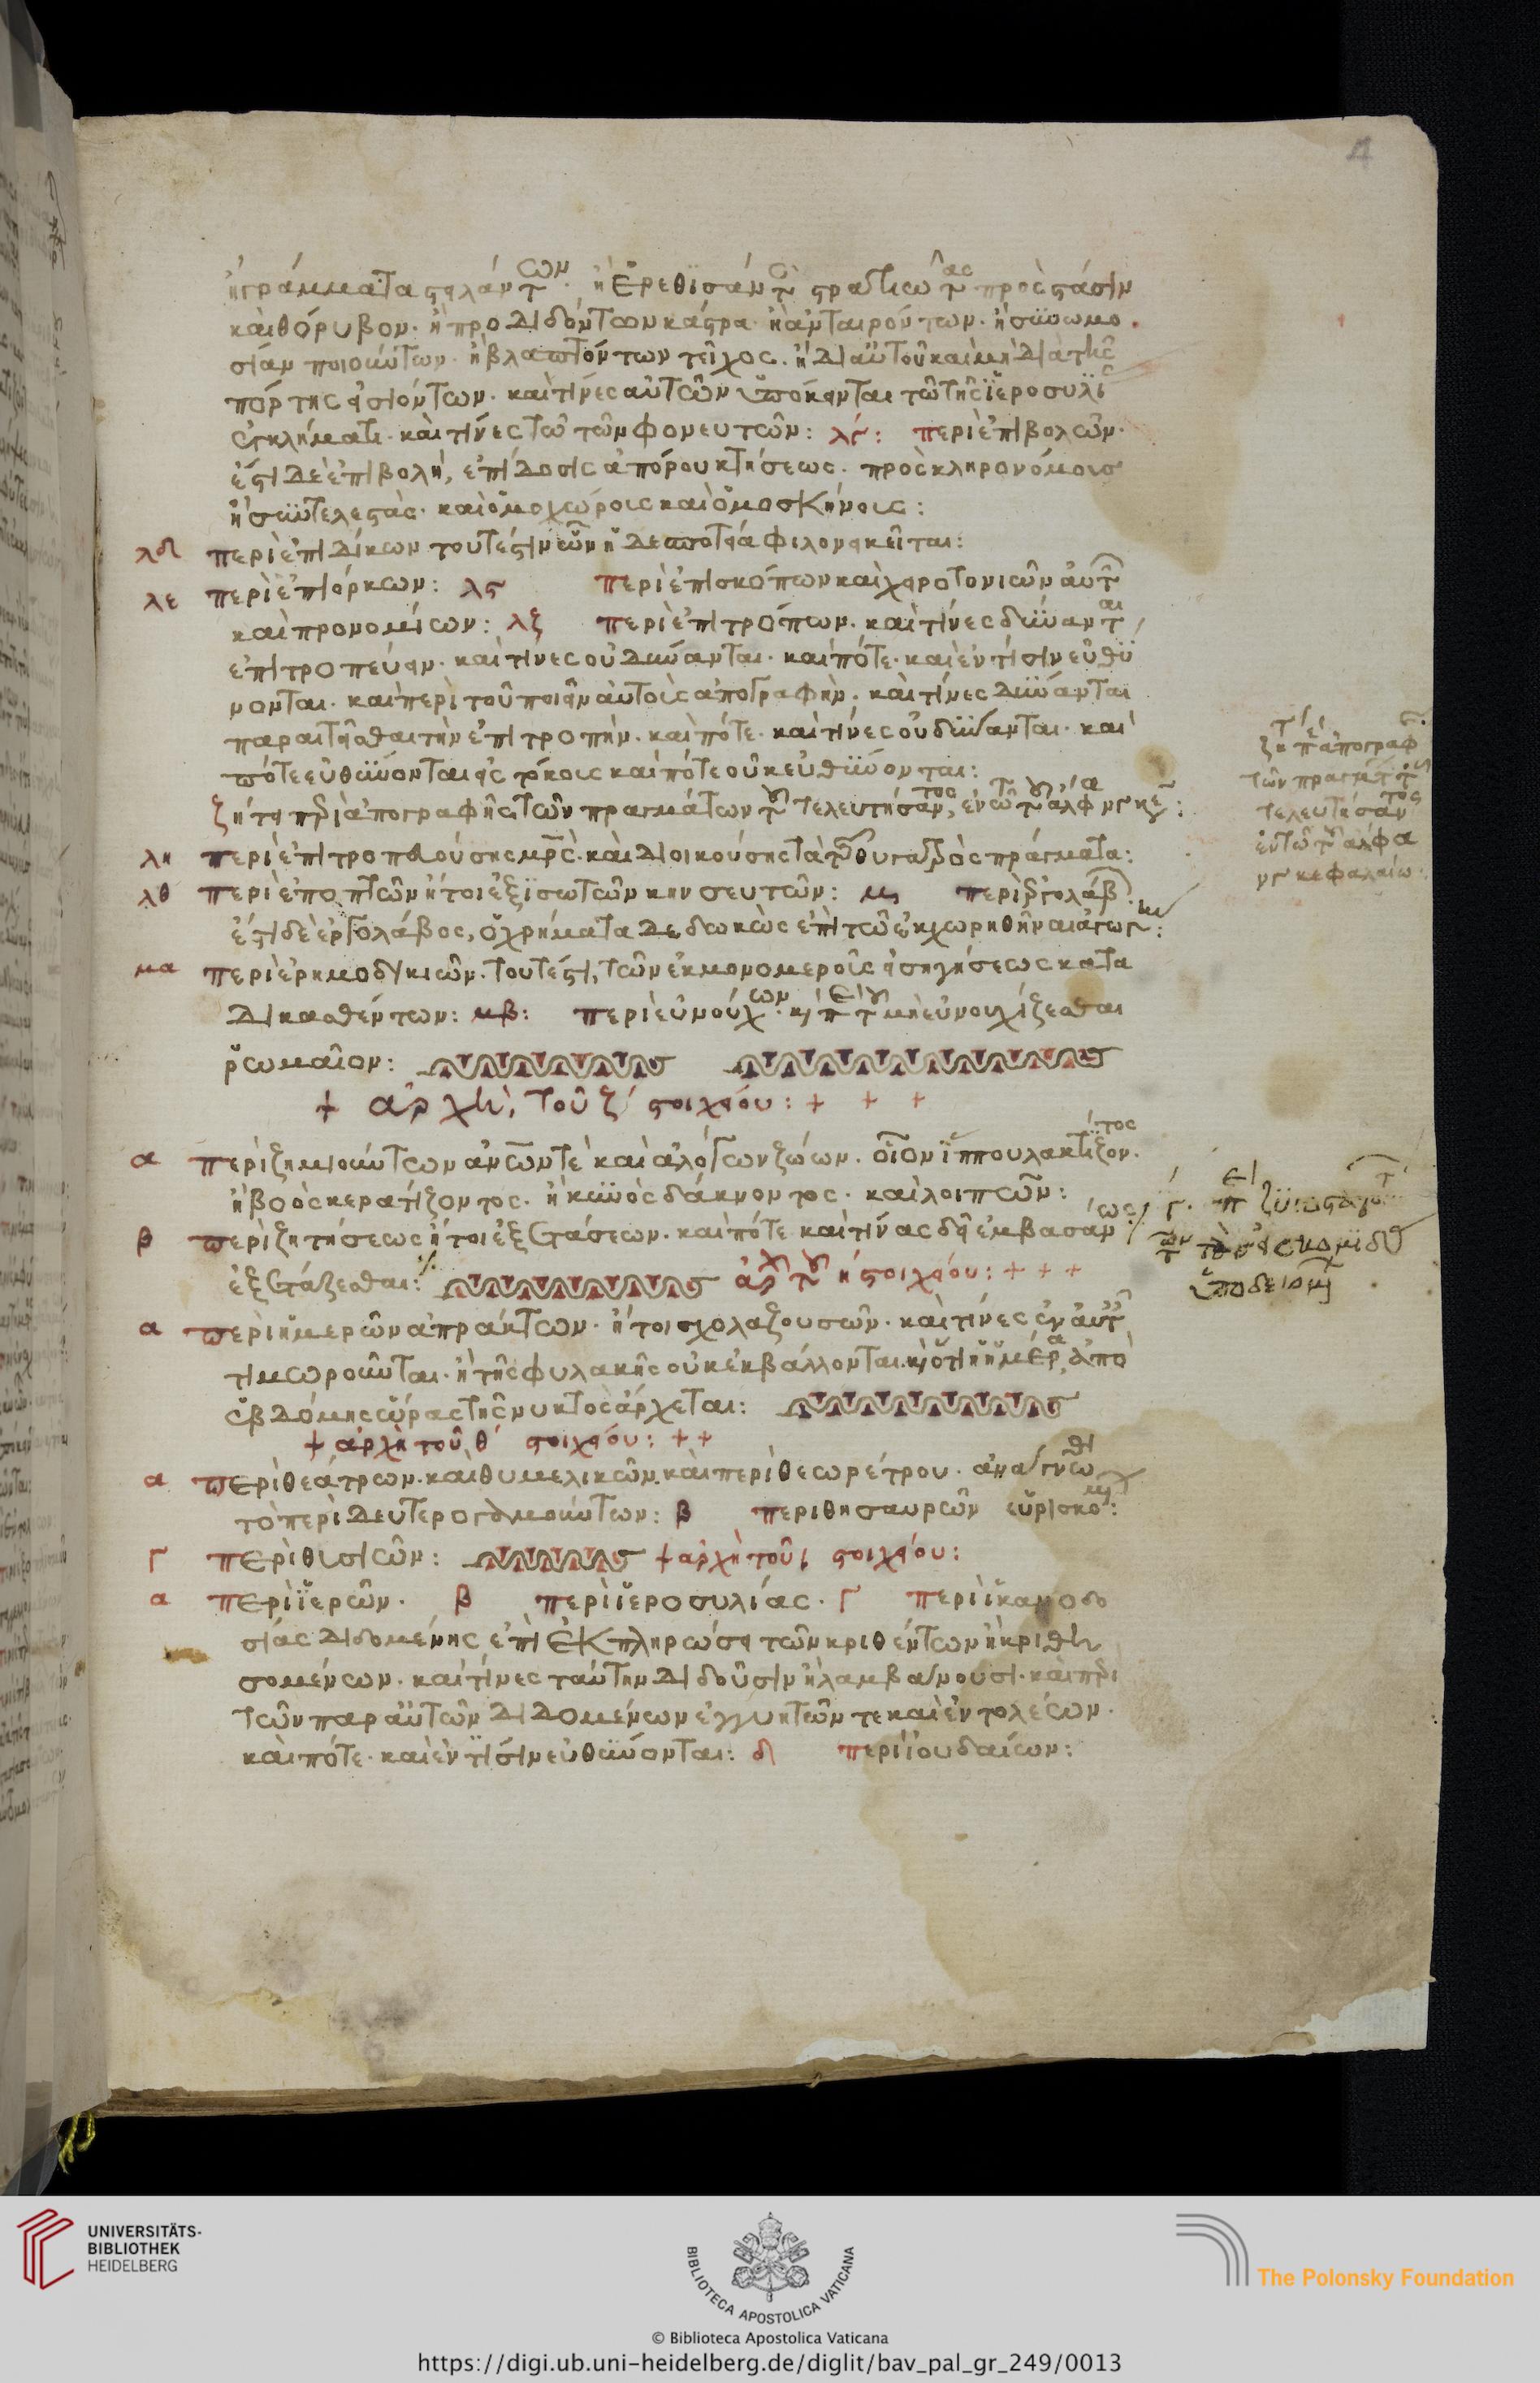 4
ἢ γράμματα στειλάντων. ἢ ἐρεθισάντων στρατιώτας πρὸς στάσιν
καὶ θόρυβον. ἢ προδιδόντων κάστρα. ἢ ἀνταιρόντων. ἢ συνωμο
σίαν ποιούντων. ἢ βλαπτόντων τεῖχος. ἢ δι αὐτοῦ καὶ μὴ διὰ τῆς
πόρτης εἰσιόντων. καὶ τίνες αὐτῶν ὑπόκεινται τῶ τῆς ἱεροσυλί
ἐγκλήματι. καὶ τίνες τῶ τῶν φονευτῶν: λγ: περὶ ἐπιβολῶν.
ἔστι δὲ ἐπιβολή, ἐπίδοσις ἀπόρου κτήσεως. πρὸς κληρονόμους
ἢ συντελεστὰς. καὶ ὁμοχώροις καὶ ὁμοσκήνοις:
λδ περὶ ἐπιδίκων τουτέστιν ὧν ἡ δεσποτεία φιλονεικεῖται:
λε περὶ ἐπιόρκων: λς περὶ ἐπισκόπων καὶ χειροτονιῶν αὐτ
καὶ προνομίων: λζ περὶ ἐπιτρόπων. καὶ τίνες δύνανται
ἐπιτροπεύειν. καὶ τίνες οὐ δύνανται. καὶ πότε. καὶ ἐν τίσιν εὐθύ
νονται. καὶ περὶ τοῦ ποιεῖν αὐτοὺς ἀπογραφὴν. καὶ τίνες δύνανται
παραιτεῖσθαι τὴν ἐπιτροπὴν. καὶ πότε. καὶ τίνες οὐ δύνανται. καὶ
πότε εὐθύνονται εἰς τόκους καὶ πότε οὐκ εὐθύνονται:
ζήτει περὶ ἀπογραφῆς τῶν πραγμάτων τοῦ τελευτήσαντος, ἐν τῶ τοῦ ἄλφα νγ κε:
λη περὶ ἐπιτροπευούσης μρς. καὶ διοικούσης τὰ τοῦ θυγατρὸς πράγματα:
λθ περὶ ἐποπτῶν ἤτοι ἐξισωτῶν κηνσευτῶν: μ περὶ ἐργολάβ
ἔστι δὲ ἐργολάβος, ὁ χρήματα δεδωκὼς ἐπὶ τῶ ἐκχωρηθῆναι ἀγωγ:
μα περὶ ἐρημοδικιῶν. τουτέστι, τῶν ἐκ μονομεροῦς εἰσηγήσεως κατα
δικασθέντων: μβ: περὶ εὐνούχων. κ περὶ τοῦ μὴ εὐνουχίζεσθαι
ῥωμαῖον:
+ ἀρχὴ, τοῦ ζ στοιχείου: + + +
α περὶ ζημιούντων ἀνῶν τὲ καὶ ἀλόγων ζώων. οἷον ἵππου λακτίζοντος.
ἢ βοὸς κερατίζοντος. ἢ κυνὸς δάκνοντος. καὶ λοιπῶν:
β περὶ ζητήσεως ἤτοι ἐξετάσεων. καὶ πότε καὶ τίνας δεῖ ἐμβασάνως
ἐξετάζεσθαι: ἀρχ τοῦ η στοιχείου: + + +
α περὶ ἡμερῶν ἀπράκτων. ἤτοι σχολαζουσῶν. καὶ τίνες ἐν αὐτ
τιμωροῦνται. ἢ τῆς φυλακῆς οὐκ ἐκβάλλονται. κ ὅτι ἡ ἡμέρα, ἀπὸ
ἑβδόμης ὥρας τῆς νυκτὸς ἄρχεται:
+ ἀρχὴ τοῦ θ στοιχείου: + +
α περὶ θεάτρων. καὶ θυμελικῶν. καὶ περὶ θεωρέτρου. ἀνάγνωθι
τὸ περὶ δευτερογαμούντων: β περὶ θησαυρῶν εὑρισκομ:
γ περὶ θυσιῶν: + ἀρχὴ τοῦ ι στοιχείου:
α περὶ ἱερῶν. β περὶ ἱεροσυλίας. γ περὶ ἱκανοδο
σίας διδομένης ἐπὶ ἐκπληρώσει τῶν κριθέντων ἢ κριθη
σομένων. καὶ τίνες ταύτην διδοῦσιν ἢ λαμβάνουσι. καὶ περὶ
τῶν παρ αὐτῶν διδομένων ἐγγυητῶν τε καὶ ἐντολέων.
καὶ πότε. καὶ ἐν τίσιν εὐθύνονται: δ περὶ ἰουδαίων:
ζη π ἀπογραφ
τῶν πραγμάτ τ
τελευτήσαντος
ἐν τῶ τοῦ ἄλφα
νγ κεφαλαίω
UNIVERSITÄTS-
BIBLIOTHEK
HEIDELBERG
BIBLIOTECA APOSTOLICA VATICANA
The Polonsky Foundation
© Biblioteca Apostolica Vaticana
https://digi.ub.uni-heidelberg.de/diglit/bav_pal_gr_249/0013